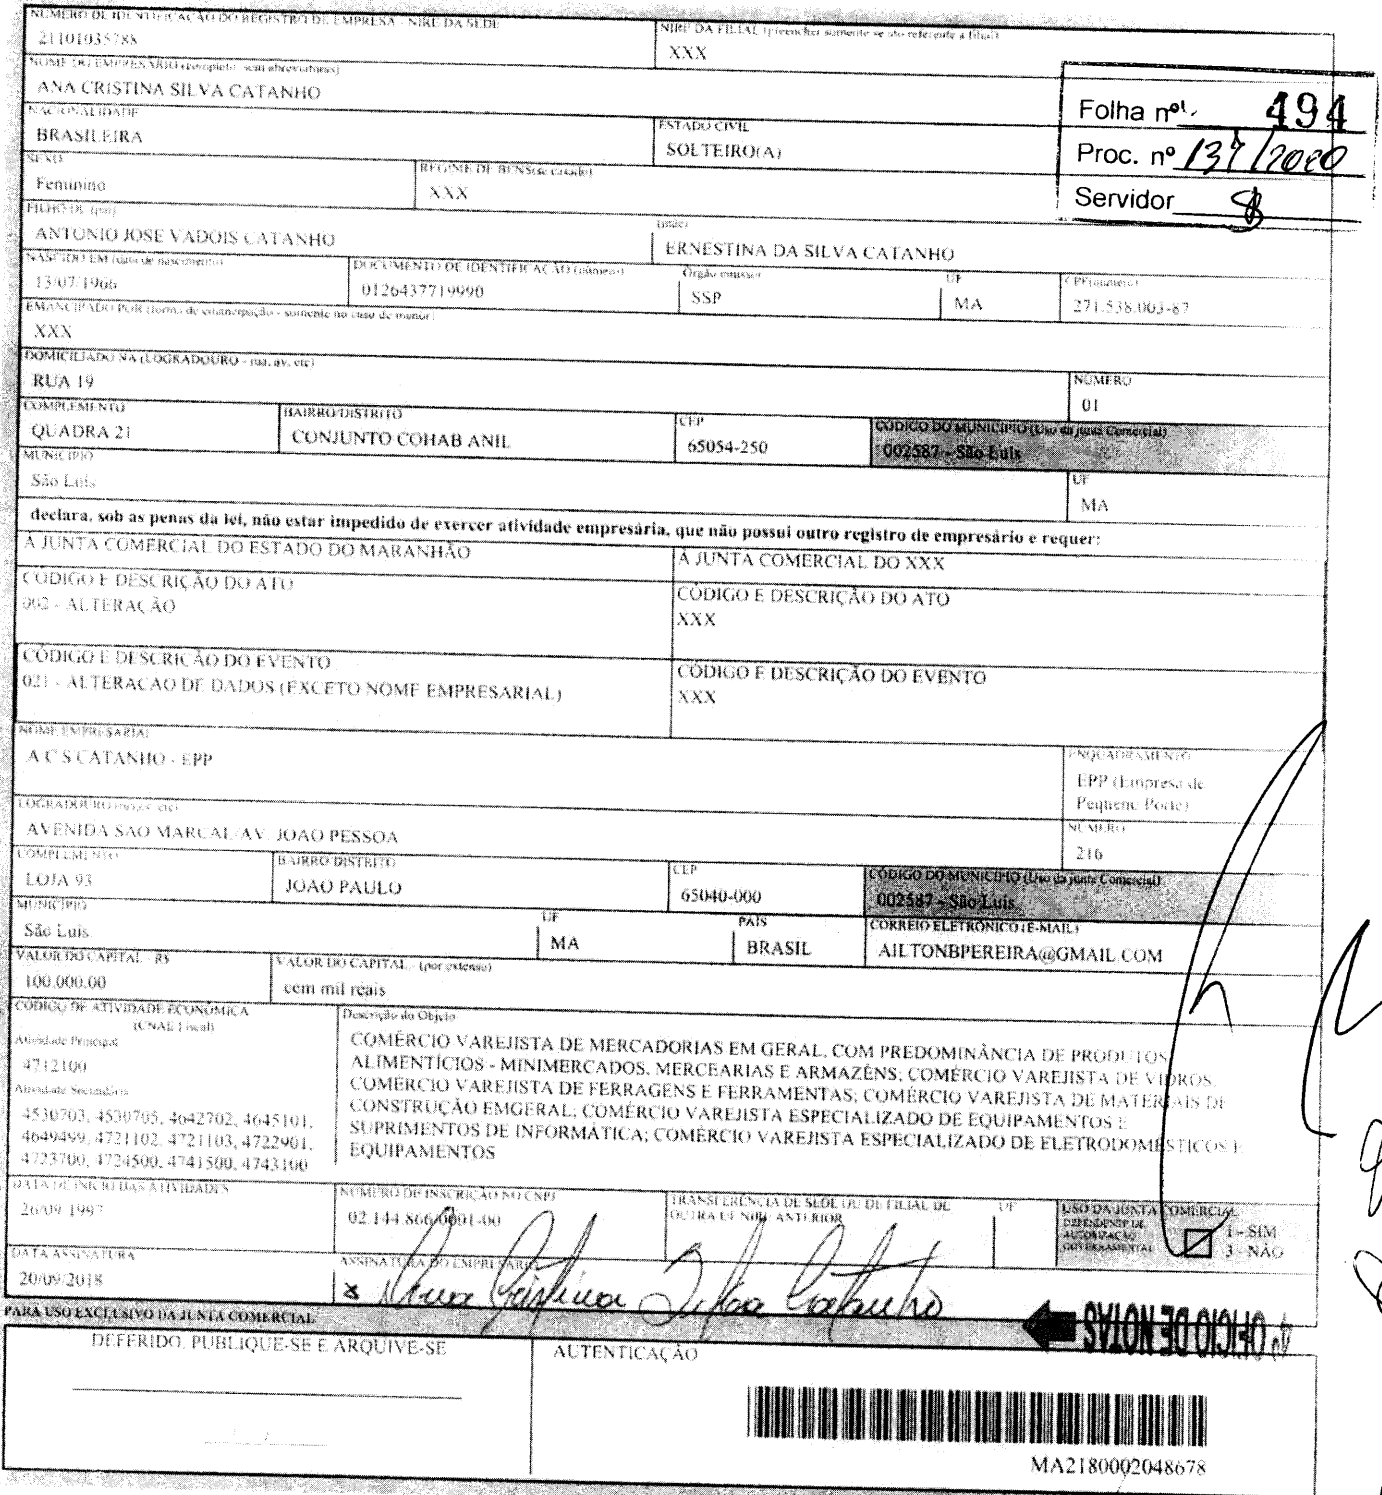 NÚMERO DE IDENTIFICAÇÃO DO REGISTRO DE EMPRESA - NIRE DA SEDE
21101035788
NIRE DA FILIAL (preencher somente se ato referente a filial)
XXX
NOME DO EMPRESÁRIO (completo, sem abreviaturas)
ANA CRISTINA SILVA CATANHO
Folha nº 494
Proc. nº 137/2020
Servidor
NACIONALIDADE
BRASILEIRA
ESTADO CIVIL
SOLTEIRO(A)
SEXO
Feminino
REGIME DE BENS (se casado)
XXX
FILHO DE (pai)
ANTONIO JOSE VADOIS CATANHO
(mãe)
ERNESTINA DA SILVA CATANHO
NASCIDO EM (data de nascimento)
13/07/1966
DOCUMENTO DE IDENTIFICAÇÃO (número)
0126437719990
Órgão emissor
SSP
UF
MA
CPF (número)
271.538.003-87
EMANCIPADO POR (forma de emancipação - somente no caso de menor)
XXX
DOMICILIADO NA (LOGRADOURO - rua, av, etc)
RUA 19
NÚMERO
01
COMPLEMENTO
QUADRA 21
BAIRRO/DISTRITO
CONJUNTO COHAB ANIL
CEP
65054-250
CÓDIGO DO MUNICÍPIO (Uso da junta Comercial)
002587 - São Luís
MUNICÍPIO
São Luís
UF
MA
declara, sob as penas da lei, não estar impedido de exercer atividade empresária, que não possui outro registro de empresário e requer:
À JUNTA COMERCIAL DO ESTADO DO MARANHÃO
À JUNTA COMERCIAL DO XXX
CÓDIGO E DESCRIÇÃO DO ATO
002 - ALTERAÇÃO
CÓDIGO E DESCRIÇÃO DO ATO
XXX
CÓDIGO E DESCRIÇÃO DO EVENTO
021 - ALTERACAO DE DADOS (EXCETO NOME EMPRESARIAL)
CÓDIGO E DESCRIÇÃO DO EVENTO
XXX
NOME EMPRESARIAL
A C S CATANHO - EPP
ENQUADRAMENTO
EPP (Empresa de
Pequeno Porte)
LOGRADOURO (rua, av, etc)
AVENIDA SAO MARCAL/AV. JOAO PESSOA
NÚMERO
216
COMPLEMENTO
LOJA 93
BAIRRO/DISTRITO
JOAO PAULO
CEP
65040-000
CÓDIGO DO MUNICÍPIO (Uso da junta Comercial)
002587 - São Luís
MUNICÍPIO
São Luís
UF
MA
PAÍS
BRASIL
CORREIO ELETRÔNICO (E-MAIL)
AILTONBPEREIRA@GMAIL.COM
VALOR DO CAPITAL - R$
100.000,00
VALOR DO CAPITAL - (por extenso)
cem mil reais
CÓDIGO DE ATIVIDADE ECONÔMICA
(CNAE Fiscal)
Atividade Principal
4712100
Atividade Secundária
4530703, 4530705, 4642702, 4645101,
4649499, 4721102, 4721103, 4722901,
4723700, 4724500, 4741500, 4743100
Descrição do Objeto
COMÉRCIO VAREJISTA DE MERCADORIAS EM GERAL, COM PREDOMINÂNCIA DE PRODUTOS
ALIMENTÍCIOS - MINIMERCADOS, MERCEARIAS E ARMAZÉNS; COMÉRCIO VAREJISTA DE VIDROS;
COMÉRCIO VAREJISTA DE FERRAGENS E FERRAMENTAS; COMÉRCIO VAREJISTA DE MATERIAIS DE
CONSTRUÇÃO EMGERAL; COMÉRCIO VAREJISTA ESPECIALIZADO DE EQUIPAMENTOS E
SUPRIMENTOS DE INFORMÁTICA; COMÉRCIO VAREJISTA ESPECIALIZADO DE ELETRODOMÉSTICOS E
EQUIPAMENTOS
DATA DE INÍCIO DAS ATIVIDADES
26/09/1997
NÚMERO DE INSCRIÇÃO NO CNPJ
02.144.866/0001-00
TRANSFERÊNCIA DE SEDE OU DE FILIAL DE
OUTRA UF NIRE ANTERIOR
UF
USO DA JUNTA COMERCIAL
DEPENDENTE DE
AUTORIZAÇÃO
GOVERNAMENTAL
1 - SIM
3 - NÃO
DATA ASSINATURA
20/09/2018
ASSINATURA DO EMPRESÁRIO
x Ana Cristina Silva Catanho
4º OFICIO DE NOTAS
PARA USO EXCLUSIVO DA JUNTA COMERCIAL
DEFERIDO. PUBLIQUE-SE E ARQUIVE-SE
AUTENTICAÇÃO
MA2180002048678